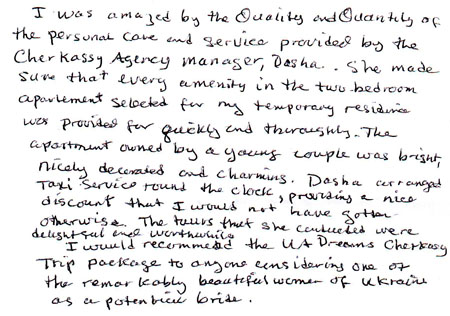 I was amazed by the Quality and Quantity of
the personal care and service provided by the
Cherkassy Agency manager, Dasha. She made
sure that every amenity in the two-bedroom
apartement selected for my temporary residence
was provided for quickly and thoroughly. The
apartment owned by a young couple was bright,
nicely decorated and charming. Dasha arranged
Taxi service round the clock, providing a nice
discount that I would not have gotten
otherwise. The tours that she conducted were
delightful and worthwhile
I would recommend the UA Dreams Cherkasy
Trip package to anyone considering one of
the remarkably beautiful women of Ukraine
as a potential bride.